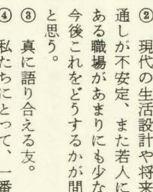 ② 現代の生活設計や将
通しが不安定、また若人に
ある職場があまりにも少な
今後これをどうするかが問
と思う。
③ 真に語り合える友。
④ 私たちにとって、一番